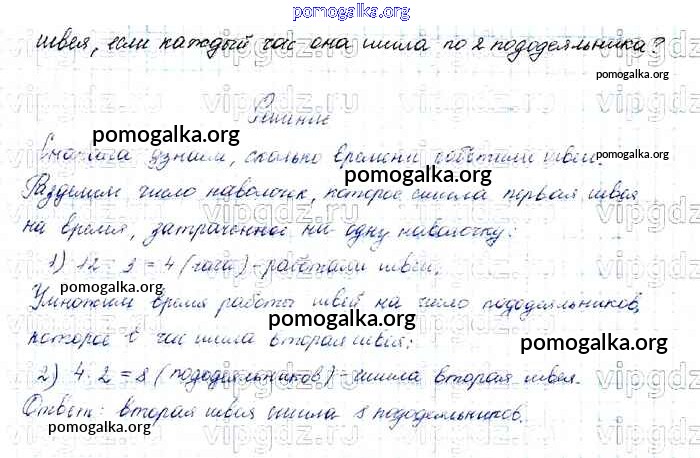 pomogalka.org
швея, если каждый час она шила по 2 пододеяльника?
pomogalka.org
Решение
pomogalka.org
Сначала узнаем, сколько времени работали швеи.
pomogalka.org
Разделим число наволочек, которое сшила первая швея
на время, затраченное на одну наволочку:
1) 12 : 3 = 4 (часа) - работали швеи.
pomogalka.org
Умножим время работы швей на число пододеяльников,
pomogalka.org
которое в час шила вторая швея:
pomogalka.org
2) 4 · 2 = 8 (пододеяльников) - сшила вторая швея.
Ответ: вторая швея сшила 8 пододеяльников.
pomogalka.org
vipgdz.ru